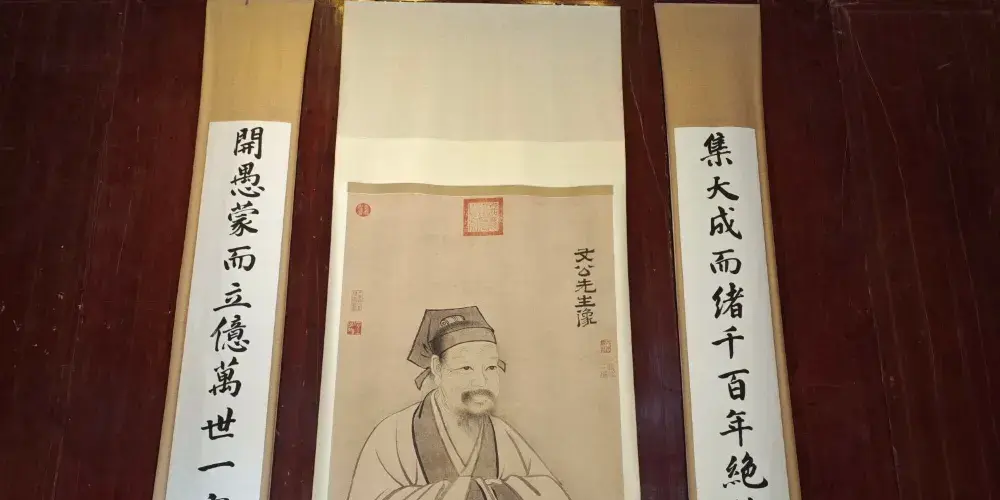 集大成而緒千百年絶
文公先生像
開愚蒙而立億萬世一